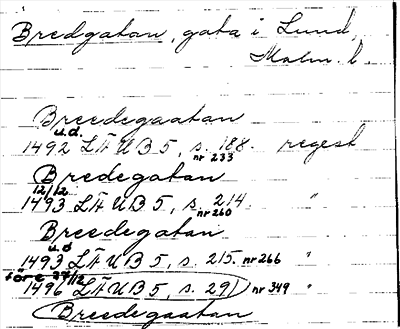 Bredgatan, gata i Lund,
Malm. l.
Breedegaatan
u.d.
1492 LÄUB 5, s. 188. regest
nr 233
Bredegatan
12/12
1493 LÄUB 5, s. 214 "
nr 260
Bredegatan
u.d
1493 LÄUB 5, s. 215. nr 266 "
före 27/12
1496 LÄUB 5, s. 291 nr 349 "
Breedegaatan